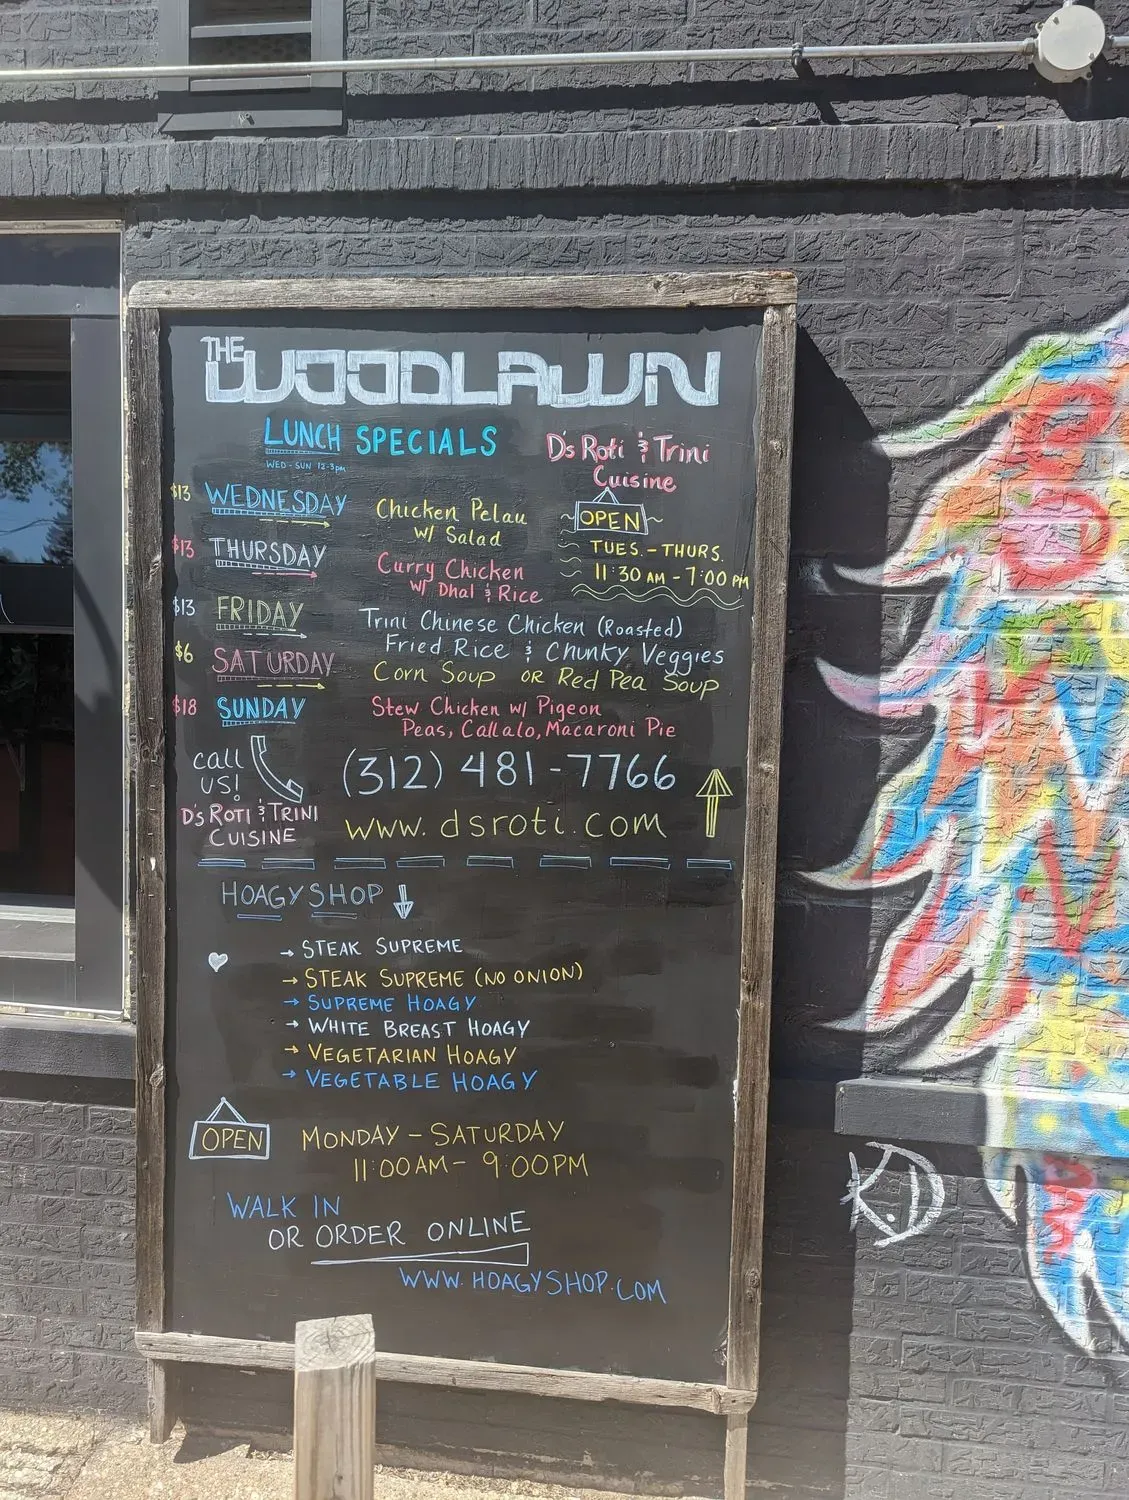 THE WOODLAWN
LUNCH SPECIALS
WED - SUN 12-3pm
D's Roti & Trini
Cuisine
OPEN
TUES. - THURS.
11:30 AM - 7:00 PM
$13 WEDNESDAY Chicken Pelau
w/ Salad
$13 THURSDAY Curry Chicken
w/ Dhal & Rice
$13 FRIDAY Trini Chinese Chicken (Roasted)
Fried Rice & Chunky Veggies
$6 SATURDAY Corn Soup OR Red Pea Soup
$18 SUNDAY Stew Chicken w/ Pigeon
Peas, Callalo, Macaroni Pie
call
US!
D's ROTI & TRINI
CUISINE
(312) 481-7766
www.dsroti.com
HOAGY SHOP
→ STEAK SUPREME
→ STEAK SUPREME (NO ONION)
→ SUPREME HOAGY
→ WHITE BREAST HOAGY
→ VEGETARIAN HOAGY
→ VEGETABLE HOAGY
OPEN
MONDAY - SATURDAY
11:00AM - 9:00PM
WALK IN
OR ORDER ONLINE
WWW.HOAGYSHOP.COM